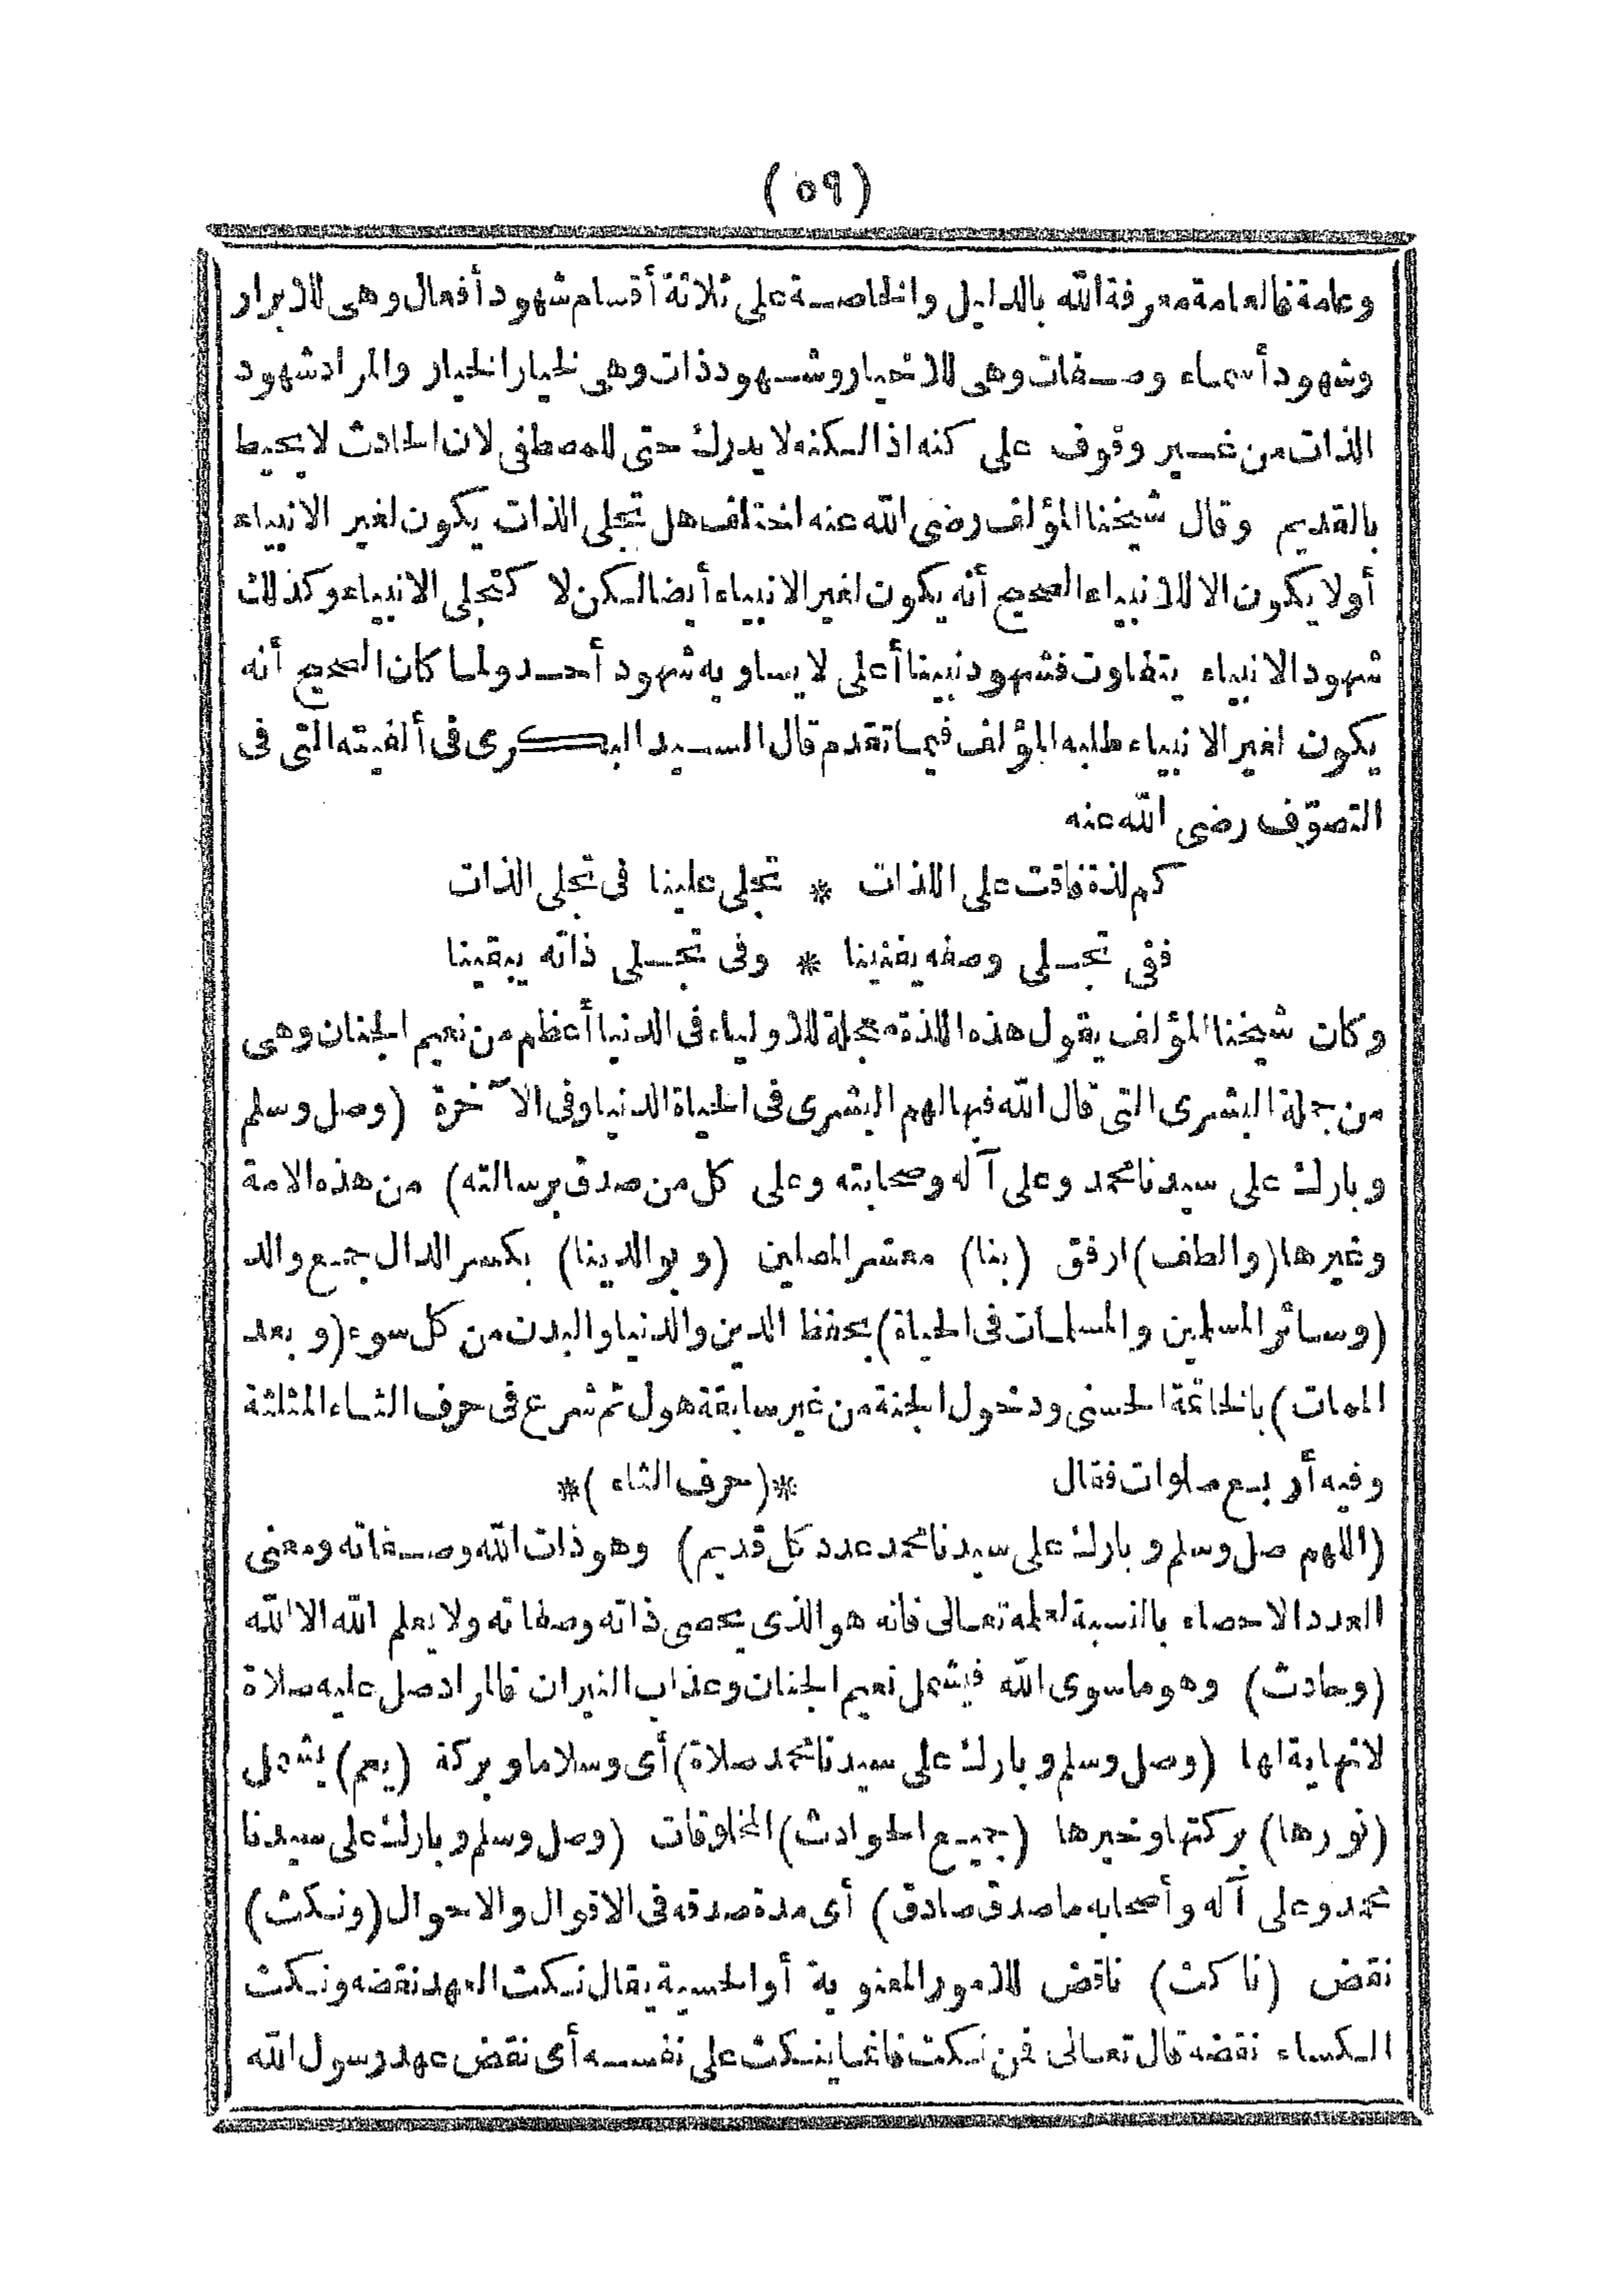 (٥٩)
وعامة فالعامة معرفة الله بالدليل والخاصة على ثلاثة أقسام شهود أفعال وهى للابرار
وشهود أسماء وصفات وهى للاخيار وشهود ذات وهى لخيار الخيار والمراد شهود
الذات من غير وقوف على كنه اذ الكنه لا يدرك حتى للمصطفى لان الحادث لا يحيط
بالقديم وقال شيخنا المؤلف رضى الله عنه اختلف هل تجلى الذات يكون لغير الانبياء
أولا يكون الا للانبياء الصحيح أنه يكون لغير الانبياء أيضا لكن لا كتجلى الانبياء وكذلك
شهود الانبياء يتفاوت فشهود نبينا أعلى لا يساويه شهود أحد ولما كان الصحيح أنه
يكون لغير الانبياء طلبه المؤلف فيما تقدم قال السيد البكرى فى ألفيته التى فى
التصوّف رضى الله عنه
كم لذة فاقت على اللذات * تجلى علينا فى تجلى الذات
ففى تجلى وصفه يفنينا * وفى تجلى ذاته يبقينا
وكان شيخنا المؤلف يقول هذه اللذة معجلة للاولياء فى الدنيا أعظم من نعيم الجنان وهى
من جملة البشرى التى قال الله فيها لهم البشرى فى الحياة الدنيا وفى الآخرة (وصل وسلم
وبارك على سيدنا محمد وعلى آله وصحابته وعلى كل من صدق برسالته) من هذه الامة
وغيرها (والطف) ارفق (بنا) معشر المصلين (وبوالدينا) بكسر الدال جمع والد
(وسائر المسلمين والمسلمات فى الحياة) بحفظ الدين والدنيا والبدن من كل سوء (وبعد
الممات) بالخاتمة الحسنى ودخول الجنة من غير سابقة هول ثم شرع فى حرف الثاء المثلثة
وفيه أربع صلوات فقال *(حرف الثاء)*
(اللهم صل وسلم وبارك على سيدنا محمد عدد كل قديم) وهو ذات الله وصفاته ومعنى
العدد الاحصاء بالنسبة لعلمه تعالى فانه هو الذى يحصى ذاته وصفاته ولا يعلم الله الا الله
(وحادث) وهو ما سوى الله فيشمل نعيم الجنان وعذاب النيران فالمراد صل عليه صلاة
لا نهاية لها (وصل وسلم وبارك على سيدنا محمد صلاة) أى وسلاما وبركة (يعم) يشمل
(نورها) بركتها وخيرها (جميع الحوادث) المخلوقات (وصل وسلم وبارك على سيدنا
محمد وعلى آله وأصحابه ما صدق صادق) أى مدة صدقه فى الاقوال والاحوال (ونكث)
نقض (ناكث) ناقض للامور المعنوية أو الحسية يقال نكث العهد نقضه ونكث
الكساء نقضه قال تعالى فمن نكث فانما ينكث على نفسه أى نقض عهد رسول الله